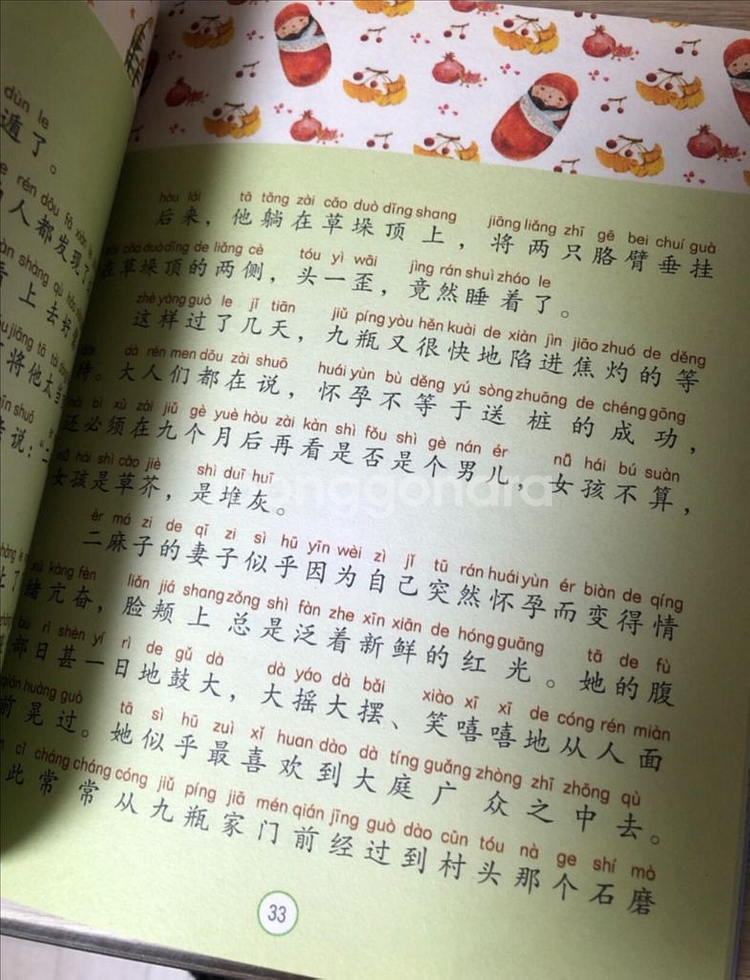 dùn le
遁了。
rén dōu fā xiàn
人都发现了
shàng qù
看上去好
jiāng tā tài
将他太当
shuō
说：“二
hòu lái tā tǎng zài cǎo duò dǐng shang jiāng liǎng zhī gē bei chuí guà
后来，他躺在草垛顶上，将两只胳臂垂挂
cǎo duò dǐng de liǎng cè tóu yì wāi jìng rán shuì zháo le
在草垛顶的两侧，头一歪，竟然睡着了。
zhè yàng guò le jǐ tiān jiǔ píng yòu hěn kuài de xiàn jìn jiāo zhuó de děng
这样过了几天，九瓶又很快地陷进焦灼的等
dà rén men dōu zài shuō huái yùn bù děng yú sòng zhuāng de chéng gōng
待。大人们都在说，怀孕不等于送桩的成功，
bì xū zài jiǔ gè yuè hòu zài kàn shì fǒu shì gè nán ér nǚ hái bú suàn
还必须在九个月后再看是否是个男儿，女孩不算，
nǚ hái shì cǎo jiè shì duī huī
女孩是草芥，是堆灰。
èr má zi de qī zi sì hū yīn wèi zì jǐ tū rán huái yùn ér biàn de qíng
二麻子的妻子似乎因为自己突然怀孕而变得情
xù kàng fèn liǎn jiá shang zǒng shì fàn zhe xīn xiān de hóng guāng tā de fù
绪亢奋，脸颊上总是泛着新鲜的红光。她的腹
bù rì shèn yí rì de gǔ dà dà yáo dà bǎi xiào xī xī de cóng rén miàn
部日甚一日地鼓大，大摇大摆、笑嘻嘻地从人面
qián huàng guò tā sì hū zuì xǐ huan dào dà tíng guǎng zhòng zhī zhōng qù
前晃过。她似乎最喜欢到大庭广众之中去。
cǐ cháng cháng cóng jiǔ píng jiā mén qián jīng guò dào cūn tóu nà ge shí mò
此常常从九瓶家门前经过到村头那个石磨
33